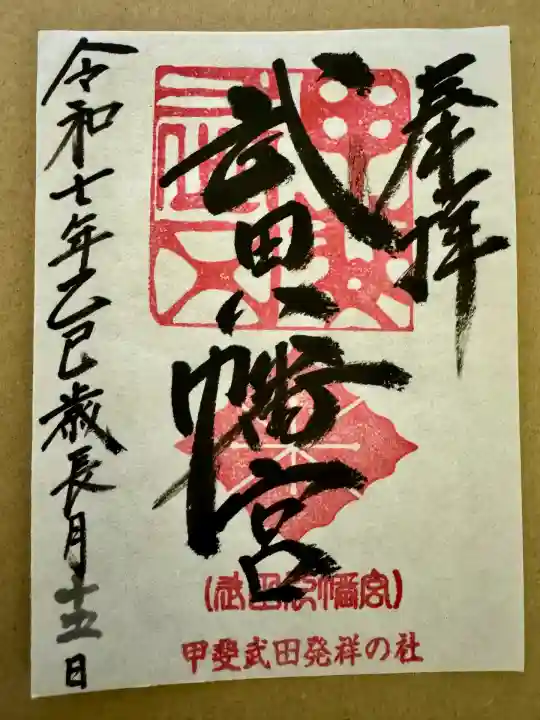 奉拝
武田八幡宮
令和七年乙巳歳長月十五日
(武田八幡宮)
甲斐武田発祥の社